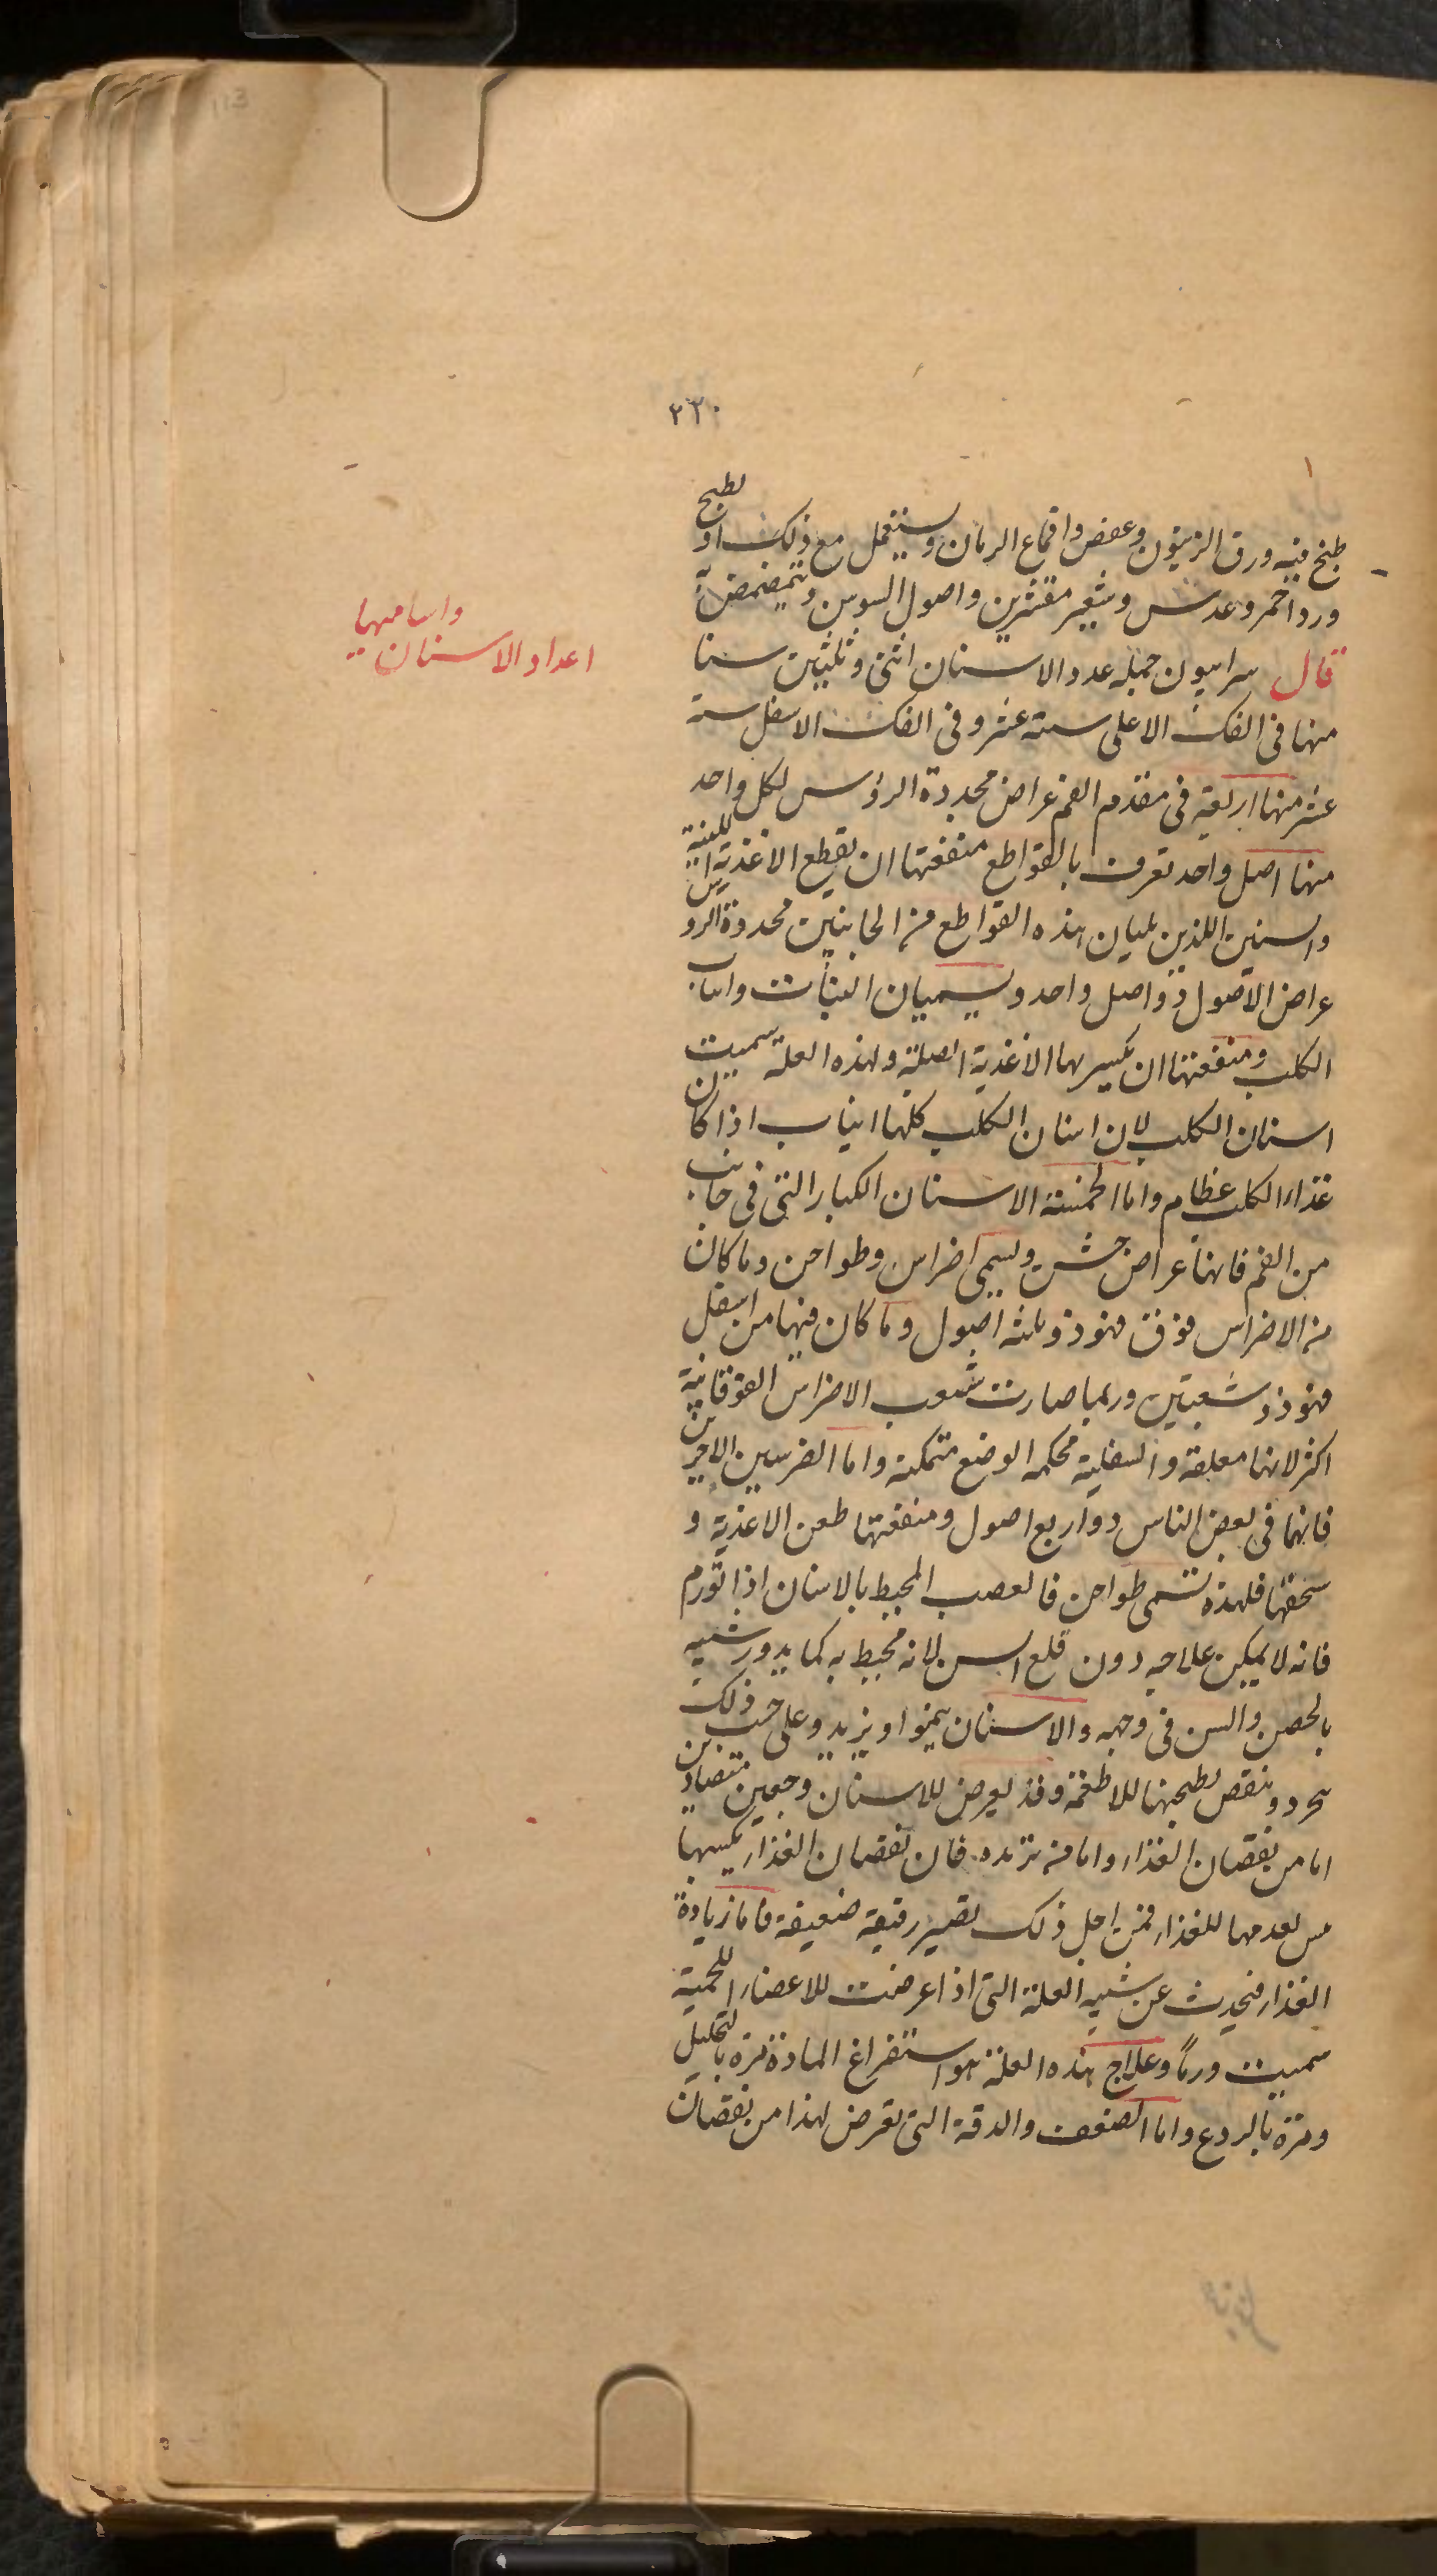 113
٢٢٠
طبخ فيه ورق الزيتون وعفص واقماع الرمان ويستعمل مع ذلك او يطبخ
ورد احمر وعدس وشعير مقشرين واصول السوس ويتمضمض به
قال سرابيون جملة عدد الاسنان اثنى وثلثين سنا
اعداد الاسنان واساميها
منها فى الفك الاعلى ستة عشر وفى الفك الاسفل ستة
عشر منها اربعة فى مقدم الفم عراض محددة الرؤس لكل واحد
منها اصل واحد تعرف بالقواطع منفعتها ان يقطع الاغذية اللينة
والسنين اللذين يليان هذه القواطع من الجانبين محدودة الروس
عراض الاصول ذو اصل واحد ويسميان النبات وانياب
الكلب ومنفعتها ان يكسر بها الاغذية الصلبة ولهذه العلة سميت
اسنان الكلب لان اسنان الكلب كلها انياب اذا كان
غذاء الكلب عظام واما الخمسة الاسنان الكبار التى فى جانب
من الفم فانها عراض خشن ويسمى اضراس وطواحن وما كان
من الاضراس فوق فهو ذو ثلثه اصول وما كان منها من اسفل
فهو ذو شعبتين وربما صارت شعب الاضراس الفوقانية
اكثر لانها معلقة والسفلية محكمه الوضع متمكنة واما الضرسين الاخيرين
فانهما فى بعض الناس ذو اربع اصول ومنفعتها طحن الاغذية و
سحقها فلهذه تسمى طواحن فالعصب المحيط بالاسنان اذا تورم
فانه لا يمكن علاجه دون قلع السن لانه محيط به كما يدور شبيه
بالحصن والسن فى وجهه والاسنان ينموا ويزيد وعلى حسب ذلك
تحرد وينقص بطحنها للاطعمة وقد يعرض للاسنان وجعين متضادين
اما من نقصان الغذاء واما من تزيده فان نقصان الغذاء يكسبها
لعدمها للغذاء فمن اجل ذلك تصير رقيقة ضعيفة فاما زيادة
الغذاء فيحدث عن شبيه العلة التى اذا عرضت للاعضاء اللحمية
سميت ورماً وعلاج هذه العلة هو استفراغ المادة مرة بالتحليل
ومرة بالردع واما الضعف والدقة التى تعرض لهذا من نقصان